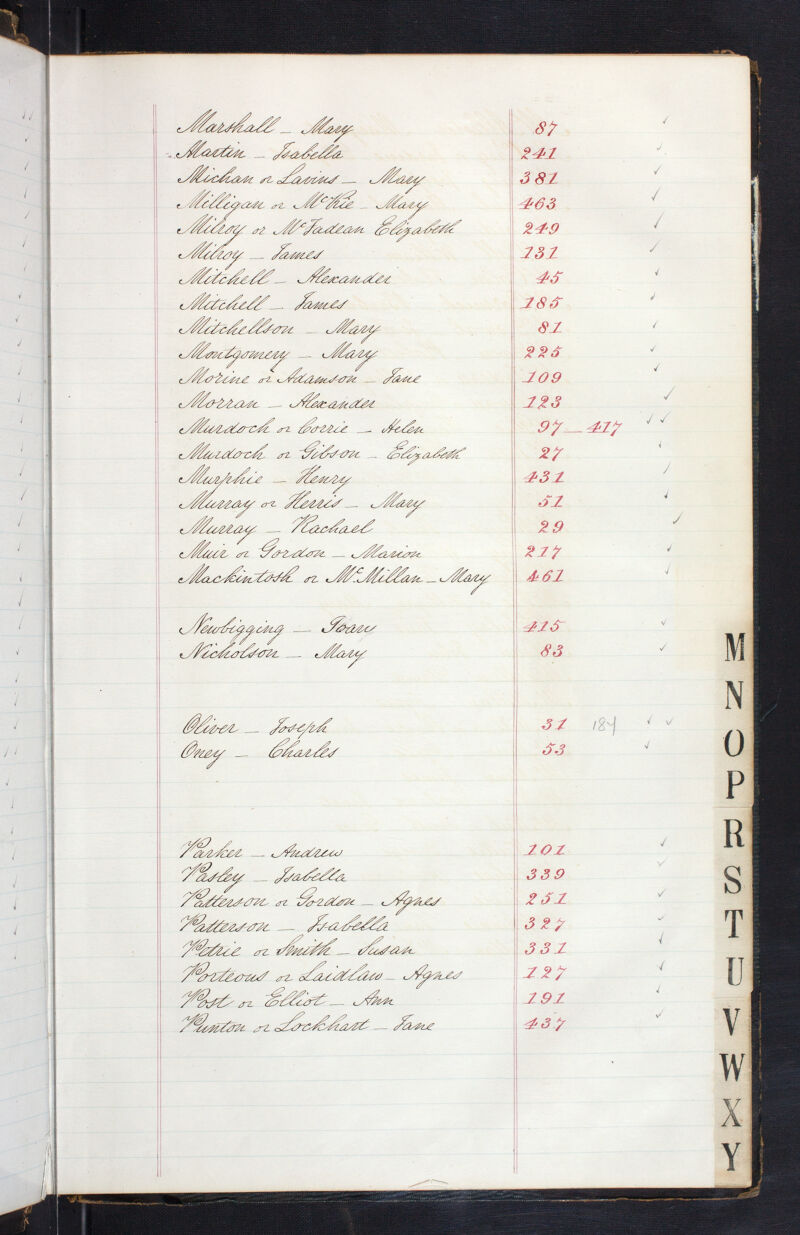 Marshall – Mary 87
Martin – Isabella 241
Michan or Lavins – Mary 381
Milligan or McKie – Mary 463
Milroy or McFadean Elizabeth 249
Milroy – James 131
Mitchell – Alexander 45
Mitchell – James 185
Mitchellson – Mary 81
Montgomery – Mary 225
Morine or Adamson – Jane 109
Morran – Alexander 123
Murdoch or Corrie – Helen 97 – 417
Murdoch or Gibson – Elizabeth 27
Murphie – Henry 431
Murray or Herris – Mary 51
Murray – Rachael 29
Muir or Gordon – Marion 217
Mackintosh or McMillan – Mary 461
Newbigging – 415
Nicholson – Mary 83
Oliver – Joseph 31 187
Oney – Charles 53
Parker – Andrew 101
Pasley – Isabella 339
Patterson or Gordon – Agnes 251
Patterson – Isabella 327
Petrie or Smith – Susan 331
Porteous or Laidlaw – Agnes 127
Post or Elliot – Ann 191
Punton or Lockhart – Jane 437
M
N
O
P
R
S
T
U
V
W
X
Y